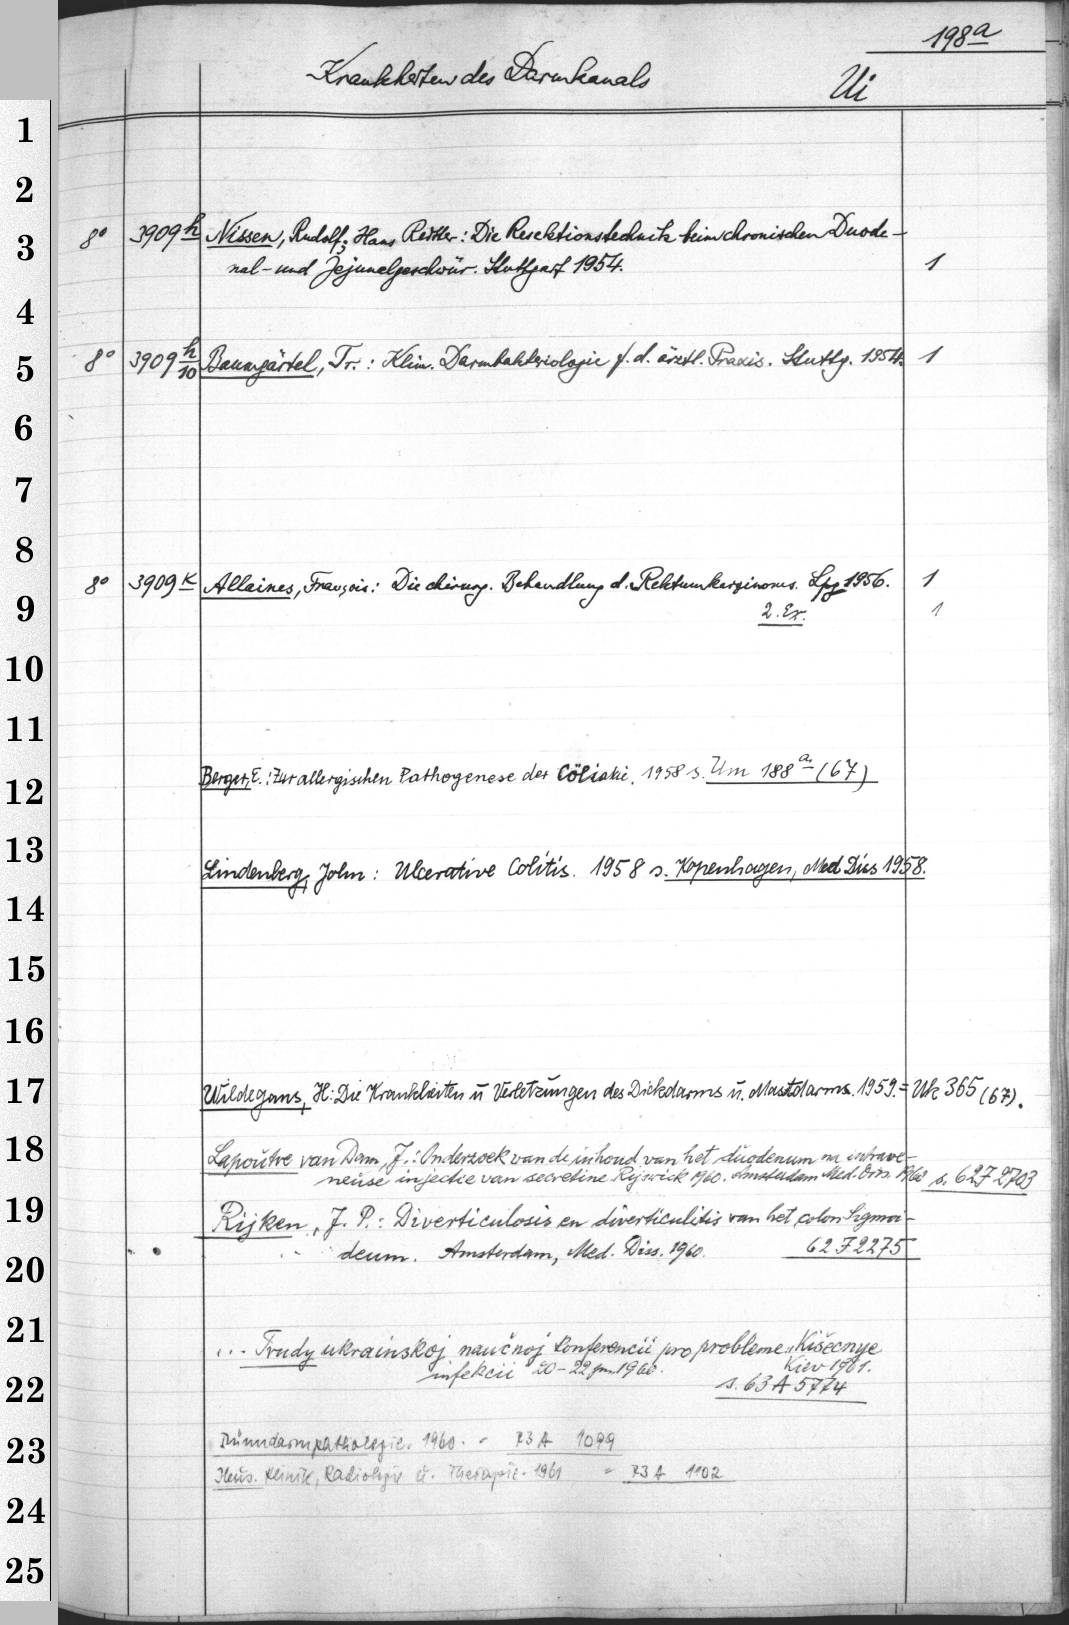 198a
Krankheiten des Darmkanals Ui
1
2
8° 3909 h Nissen, Rudolf; Hans : Die Resektionstechnik beim chronischen Duode-
3
nal- und Jejunalgeschwür. Stuttgart 1954. 1
4
8° 3909 h/10 Baumgärtel, Tr.: Klin. Darmbakteriologie f. d. ärztl. Praxis. Stuttg. 1954. 1
5
6
7
8
8° 3909 K Allaines, François: Die chirurg. Behandlung d. Rektumkarzinoms. Lpg 1956. 1
9 2. Ex. 1
10
11
Berger, E.: Zur allergischen Pathogenese der Cöliakie. 1958 s. Um 188 a (67)
12
13
Lindenberg, John: Ulcerative Colitis. 1958 s. Kopenhagen, Med Diss 1958.
14
15
16
17 Wildegans, H: Die Krankheiten u Verletzungen des Dickdarms u. Mastdarms. 1959. = Uk 365 (67).
18 Lapoutre van Dam, J.: Onderzoek van de inhoud van het duodenum na intrave-
neuse injectie van secretine Rijswick 1960. Amsterdam Med. Diss. 1960 s. 62 F 2703
19 Rijken, J. P.: Diverticulosis en diverticulitis van het colon Sigmoi-
deum. Amsterdam, Med. Diss. 1960. 62 F 2275
20
21
... Trudy ukrainskoj naučnoj konferencii pro probleme "Kišecnye
infekcii 20-22 1960. Kiev 1961.
22 s. 63 A 5774
23 Dünndarmpathologie. 1960. = 73 A 1099
Ileus. Klinik, Radiologie u. Therapie. 1961 = 73 A 1102
24
25